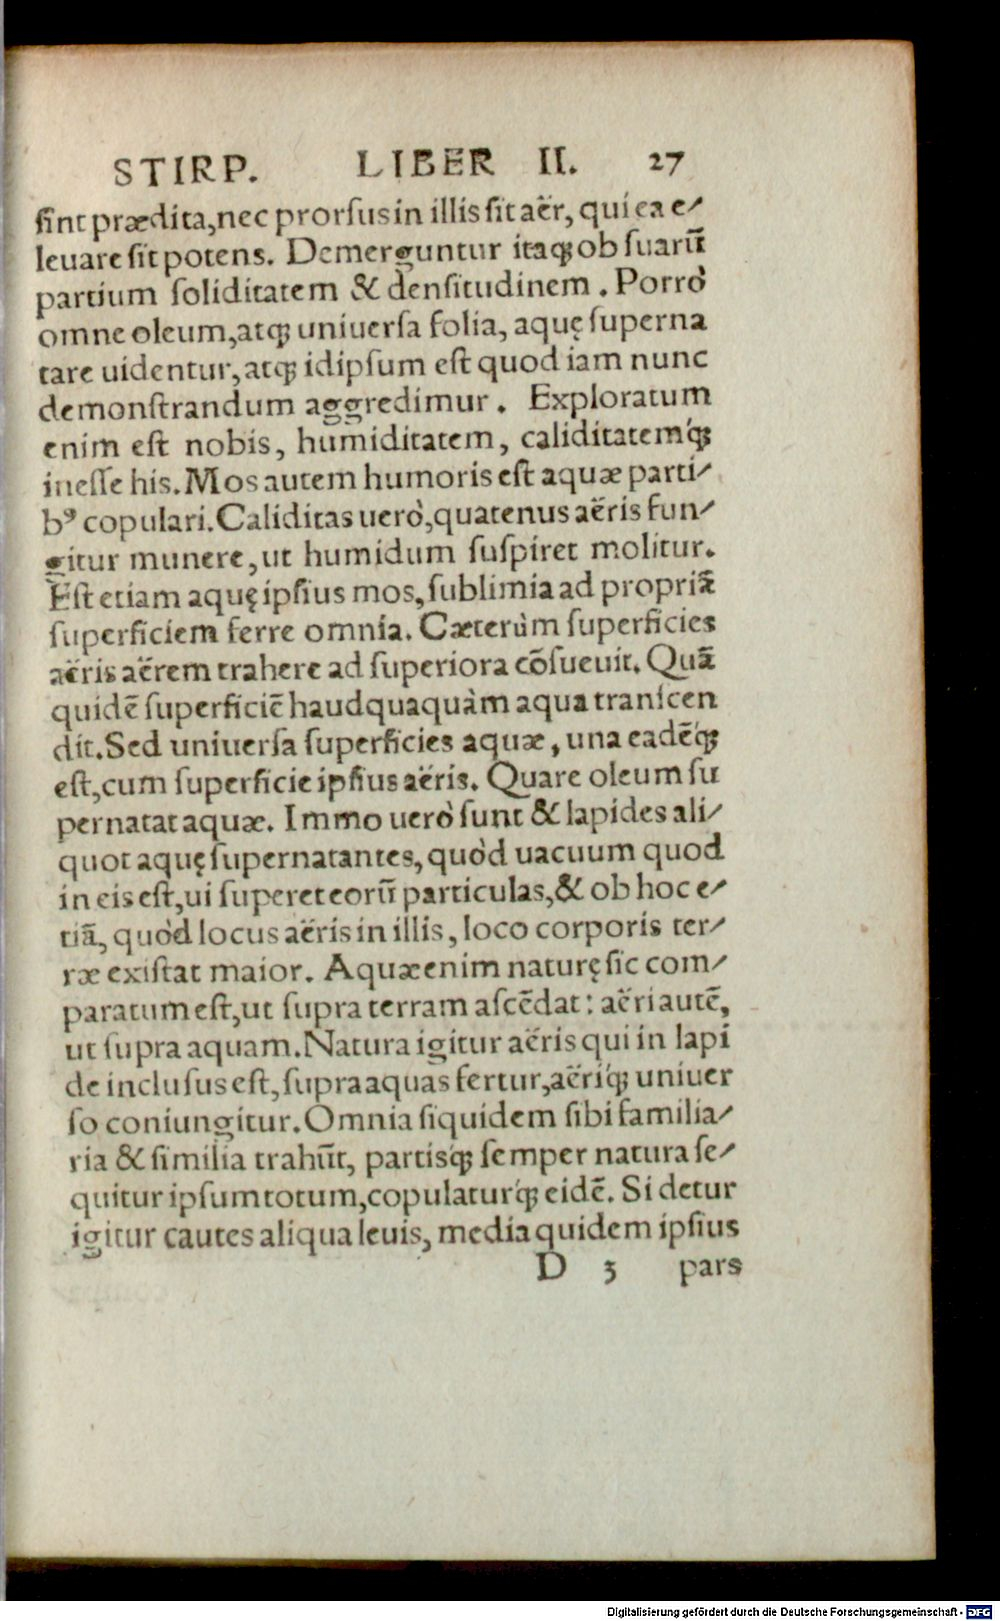 STIRP. LIBER II. 27
ſint prædita, nec prorſus in illis ſit aër, qui ea e⸗
leuare ſit potens. Demerguntur itaqꝫ ob ſuarū
partium ſoliditatem & denſitudinem. Porrò
omne oleum, atqꝫ uniuerſa folia, aquę ſuperna
tare uidentur, atqꝫ idipſum eſt quod iam nunc
demonſtrandum aggredimur. Exploratum
enim eſt nobis, humiditatem, caliditatemq́ꝫ
ineſſe his. Mos autem humoris eſt aquæ parti⸗
bꝰ copulari. Caliditas uerò, quatenus aëris fun⸗
gitur munere, ut humidum ſuſpiret molitur.
Eſt etiam aquę ipſius mos, ſublimia ad propriā
ſuperficiem ferre omnia. Cæterùm ſuperficies
aëris aërem trahere ad ſuperiora cōſueuit. Quā
quidē ſuperficiē haudquaquàm aqua tranſcen
dit. Sed uniuerſa ſuperficies aquæ, una eadēq́ꝫ
eſt, cum ſuperficie ipſius aëris. Quare oleum ſu
pernatat aquæ. Immo uerò ſunt & lapides ali⸗
quot aquę ſupernatantes, quòd uacuum quod
in eis eſt, ui ſuperet eorū particulas, & ob hoc e⸗
tiā, quòd locus aëris in illis, loco corporis ter⸗
ræ exiſtat maior. Aquæ enim naturę ſic com⸗
paratum eſt, ut ſupra terram aſcēdat: aëri autē,
ut ſupra aquam. Natura igitur aëris qui in lapi
de incluſus eſt, ſupra aquas fertur, aëriq́ꝫ uniuer
ſo coniungitur. Omnia ſiquidem ſibi familia⸗
ria & ſimilia trahūt, partisq́ꝫ ſemper natura ſe⸗
quitur ipſum totum, copulaturq́ꝫ eidē. Si detur
igitur cautes aliqua leuis, media quidem ipſius
D 3 pars
Digitalisierung gefördert durch die Deutsche Forschungsgemeinschaft - DFG